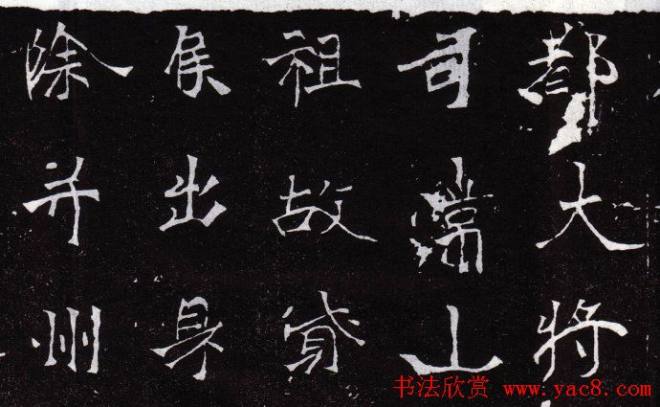 都大将
司常山
祖故貸
侯出身
除并州
书法欣赏 www.yac8.com